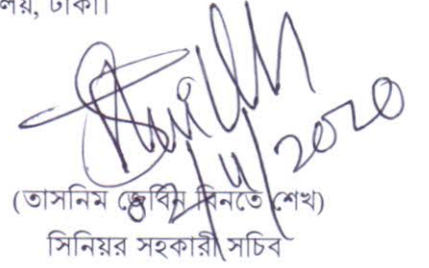 লয়, ঢাকা।
2/11/2020
(তাসনিম জেবিন বিনতে শেখ)
সিনিয়র সহকারী সচিব